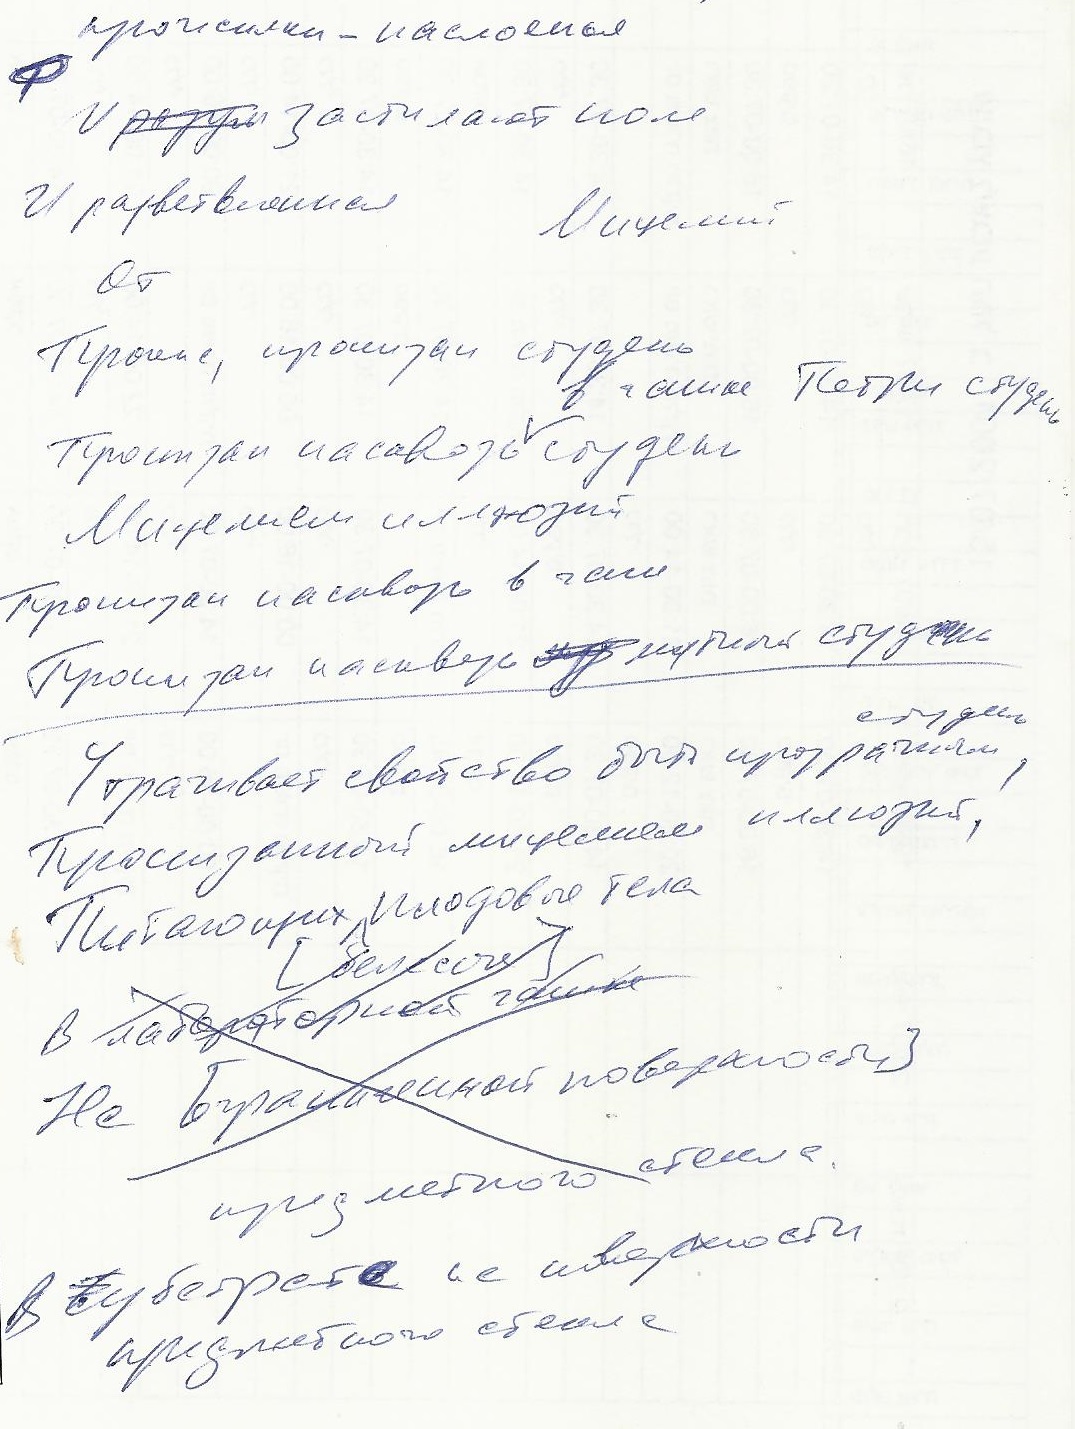 И застилают поле
И разветвленная
Мицелий
От
Прониз, пронизан студень
в чашке Петри студень
Пронизан насквозь студень
Мицелием иллюзий
Пронизан насквозь в чаш
Пронизан насквозь мутный студень
студень
Утрачивает свойство быть прозрачным,
Пронизанный мицелием иллюзий,
Питающих плодовые тела
[белесые]
В лабораторной чашке
На [ограниченной поверхности]
предметного стекла.
В субстрате на поверхности
предметного стекла